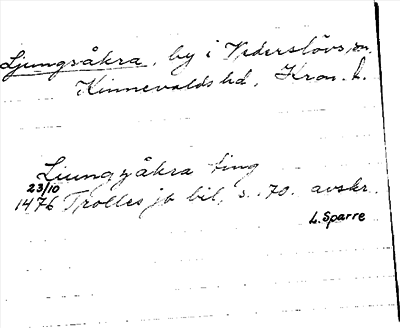 Ljungsåkra, by i Vederslövs sn.
Kinnevalds hd, Kron. l.
Liungzåkra ting
23/10
1476 Trolles jb bil, s. 70. avskr.
L. Sparre